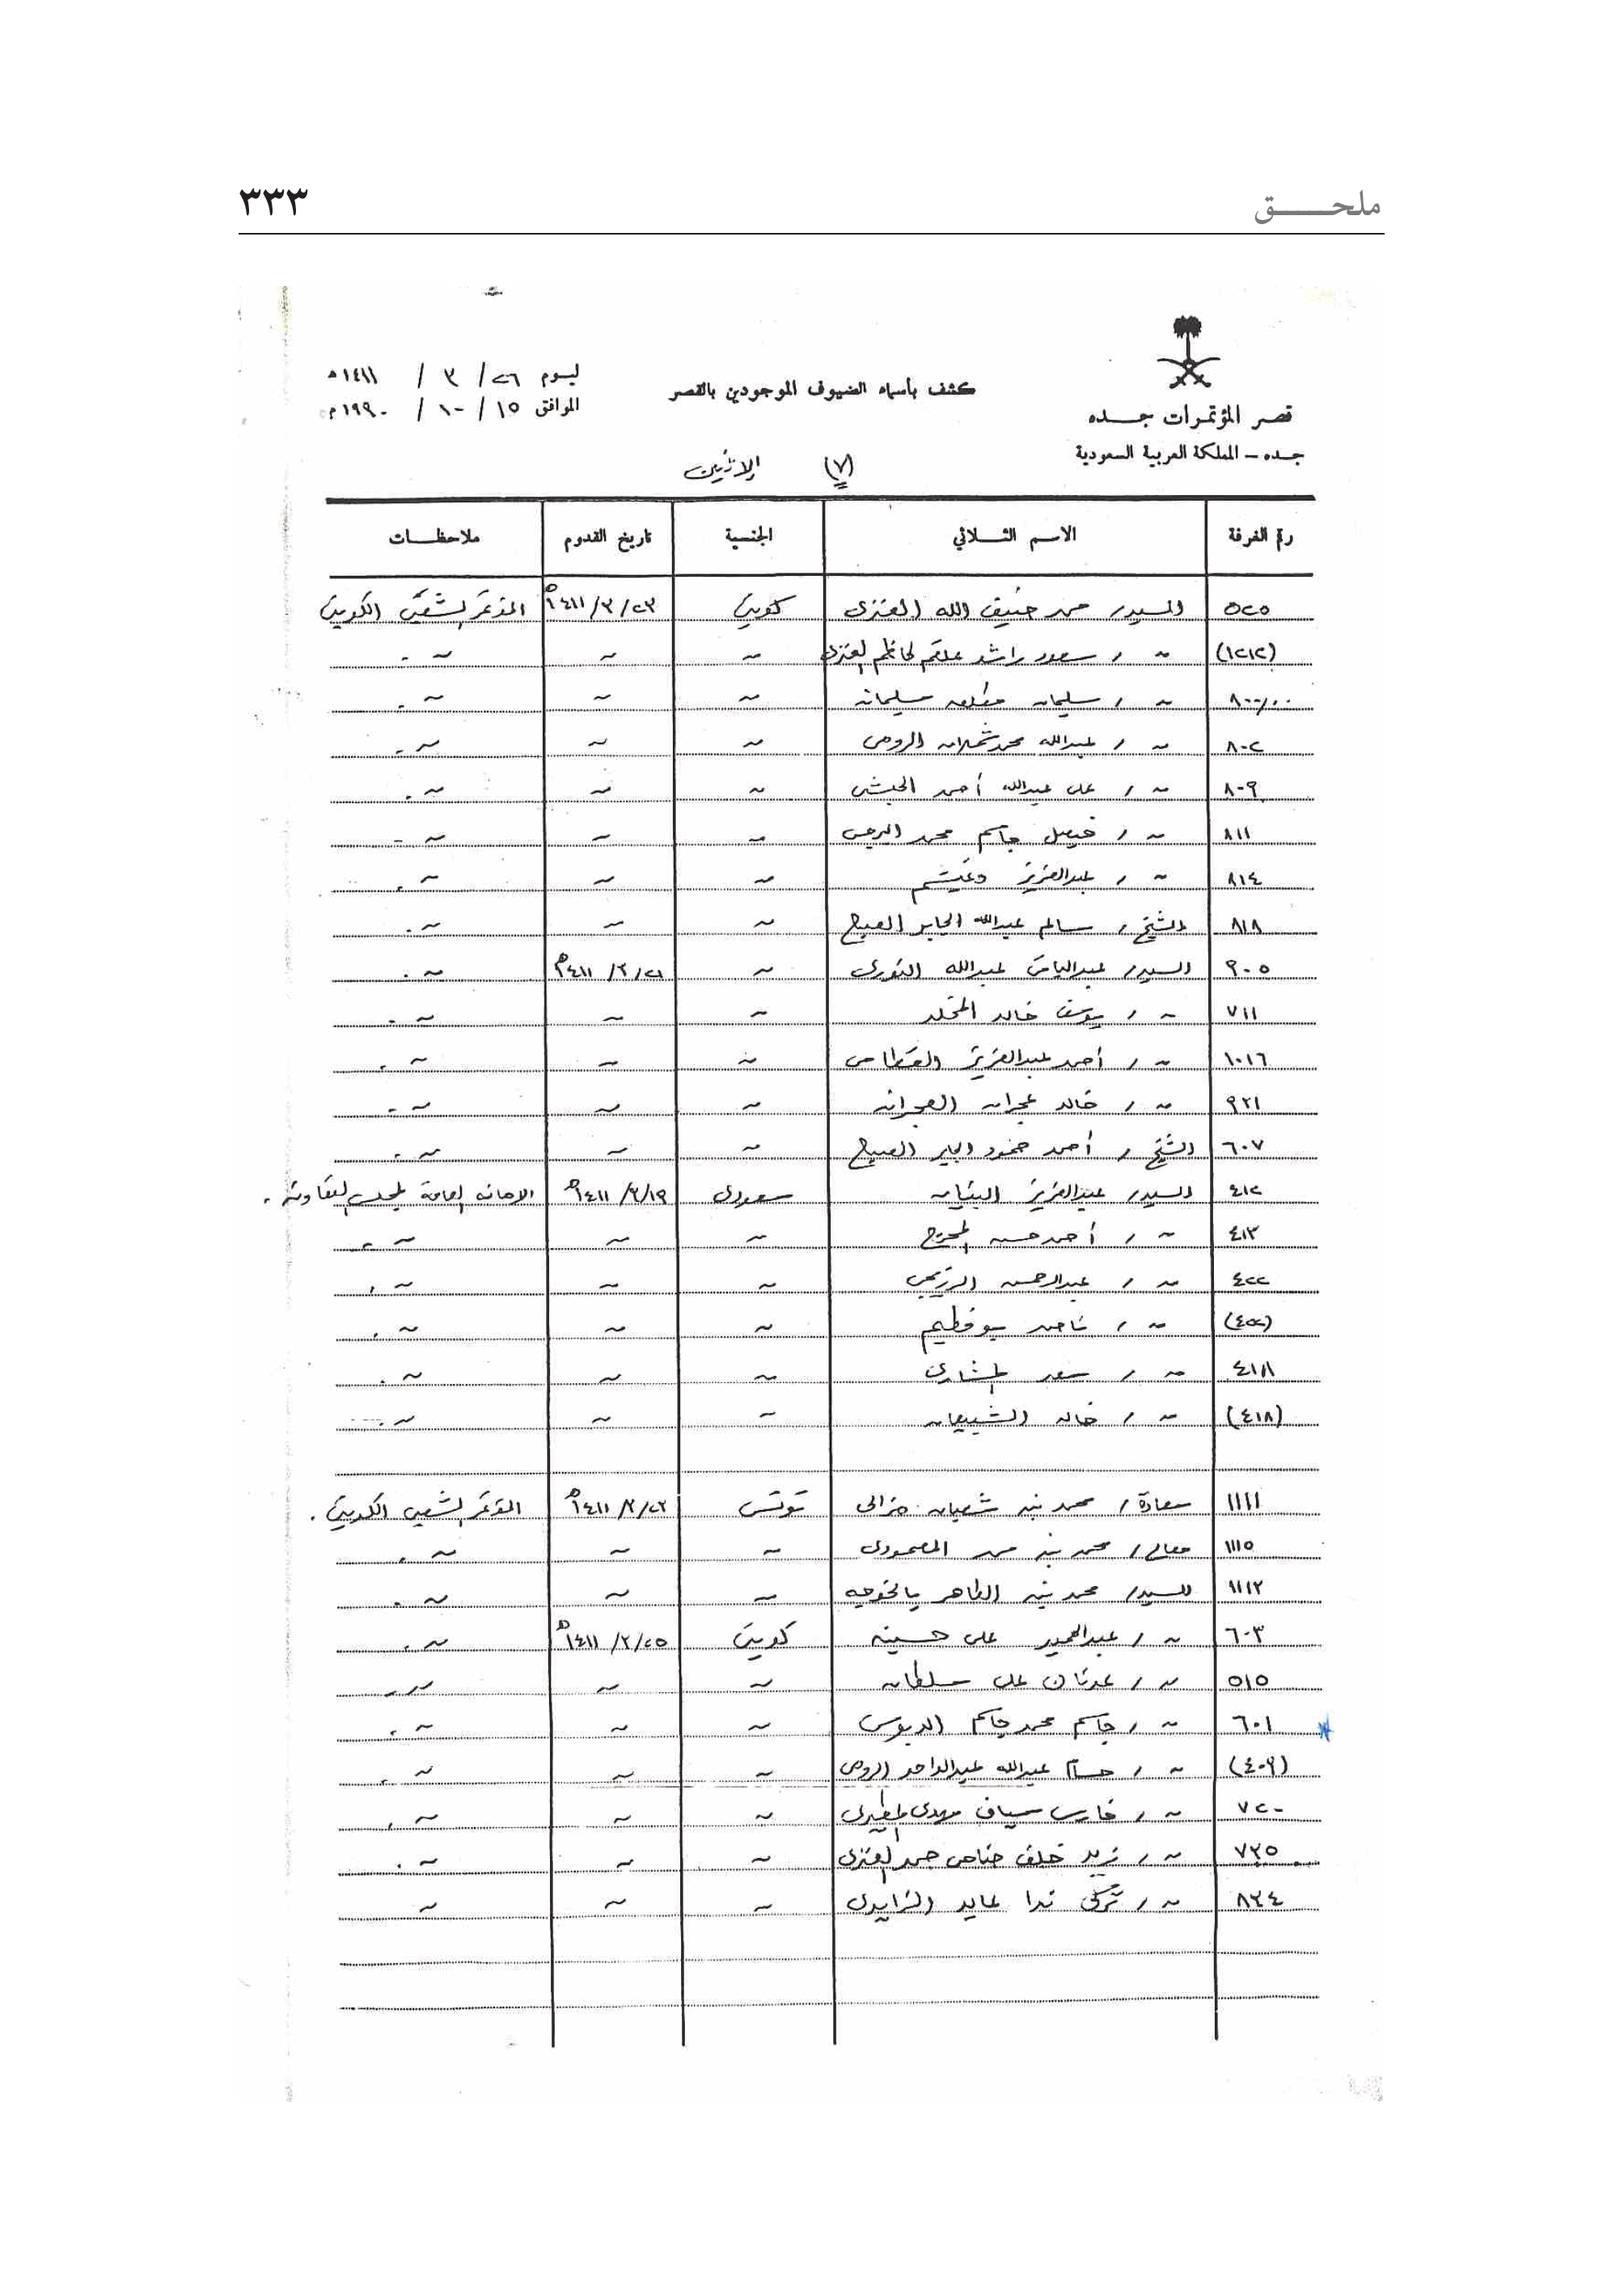 ملحـــــق ٣٣٣
قصر المؤتمرات جـــده
جـده – المملكة العربية السعودية
كشف بأسماء الضيوف الموجودين بالقصر
ليوم ٢٦ / ٣ / ١٤١١ه
الموافق ١٥ / ١٠ / ١٩٩٠م
(٧) الاثنين
رقم الغرفة الاسم الثــلاثي الجنسية تاريخ القدوم ملاحظــات
٥٢٥ السيد/ حمد ضيف الله العنزي كويتي ٢٣/٣/١٤١١ه المؤتمر الشعبي الكويتي
(١٢١٢) ~ / سعود راشد علقم العنزي ~ ~ ~.
~ / سليمان سليمان ~ ~ ~.
٨٠٢ ~ / عبدالله محمد شملان الرومي ~ ~ ~.
٨٠٩ ~ / علي عبدالله أحمد الحبشي ~ ~ ~.
٨١١ ~ / فيصل جاسم محمد ~ ~ ~.
٨١٤ ~ / عبدالعزيز دغيشم ~ ~ ~.
٨١٨ الشيخ / سالم عبدالله الجابر الصباح ~ ~ ~.
٩٠٥ السيد/ عبدالباقي عبدالله النوري ~ ٢١/٣/١٤١١ه ~.
٧١١ ~ / يوسف خالد المخلد ~ ~ ~.
١٠١٦ ~ / أحمد عبدالعزيز القطامي ~ ~ ~.
٩٢١ ~ / خالد عجران العجران ~ ~ ~.
٦٠٧ الشيخ / أحمد حمود الجابر الصباح ~ ~ ~.
٤١٢ السيد/ عبدالعزيز البنيان سعودي ١٩/٣/١٤١١ه الامانه العامة لمجلس التعاون.
٤١٣ ~ / أحمد حسن ~ ~ ~.
٤٢٢ ~ / عبدالرحمن ~ ~ ~.
~ / ناصر بوفطيم ~ ~ ~.
٤١٨ ~ / سعد المشاري ~ ~ ~.
(٤١٨) ~ / خالد الشبيعان ~ ~ ~.
١١١١ سعادة / محمد بن شعبان مزالي تونسي ٢٣/٣/١٤١١ه المؤتمر الشعبي الكويتي.
١١١٥ معالي / محمد بن المصمودي ~ ~ ~.
١١١٢ السيد/ محمد بن الطاهر بالخوجه ~ ~ ~.
٦٠٣ ~ / عبدالحميد علي حسين كويتي ٢٥/٣/١٤١١ه ~.
٥١٥ ~ / عدنان علي سلطان ~ ~ ~
٦٠١ ~ / جاسم محمد جاسم الدبوس ~ ~ ~.
(٤٠٩) ~ / حسام عبدالله عبدالواحد الرومي ~ ~ ~.
٧٢٠ ~ / فارس سياف مهدي المطيري ~ ~ ~.
٧٢٥ ~ / زيد خلف حمد العنزي ~ ~ ~.
٨٢٤ ~ / تركي ندا عايد الزايدي ~ ~ ~